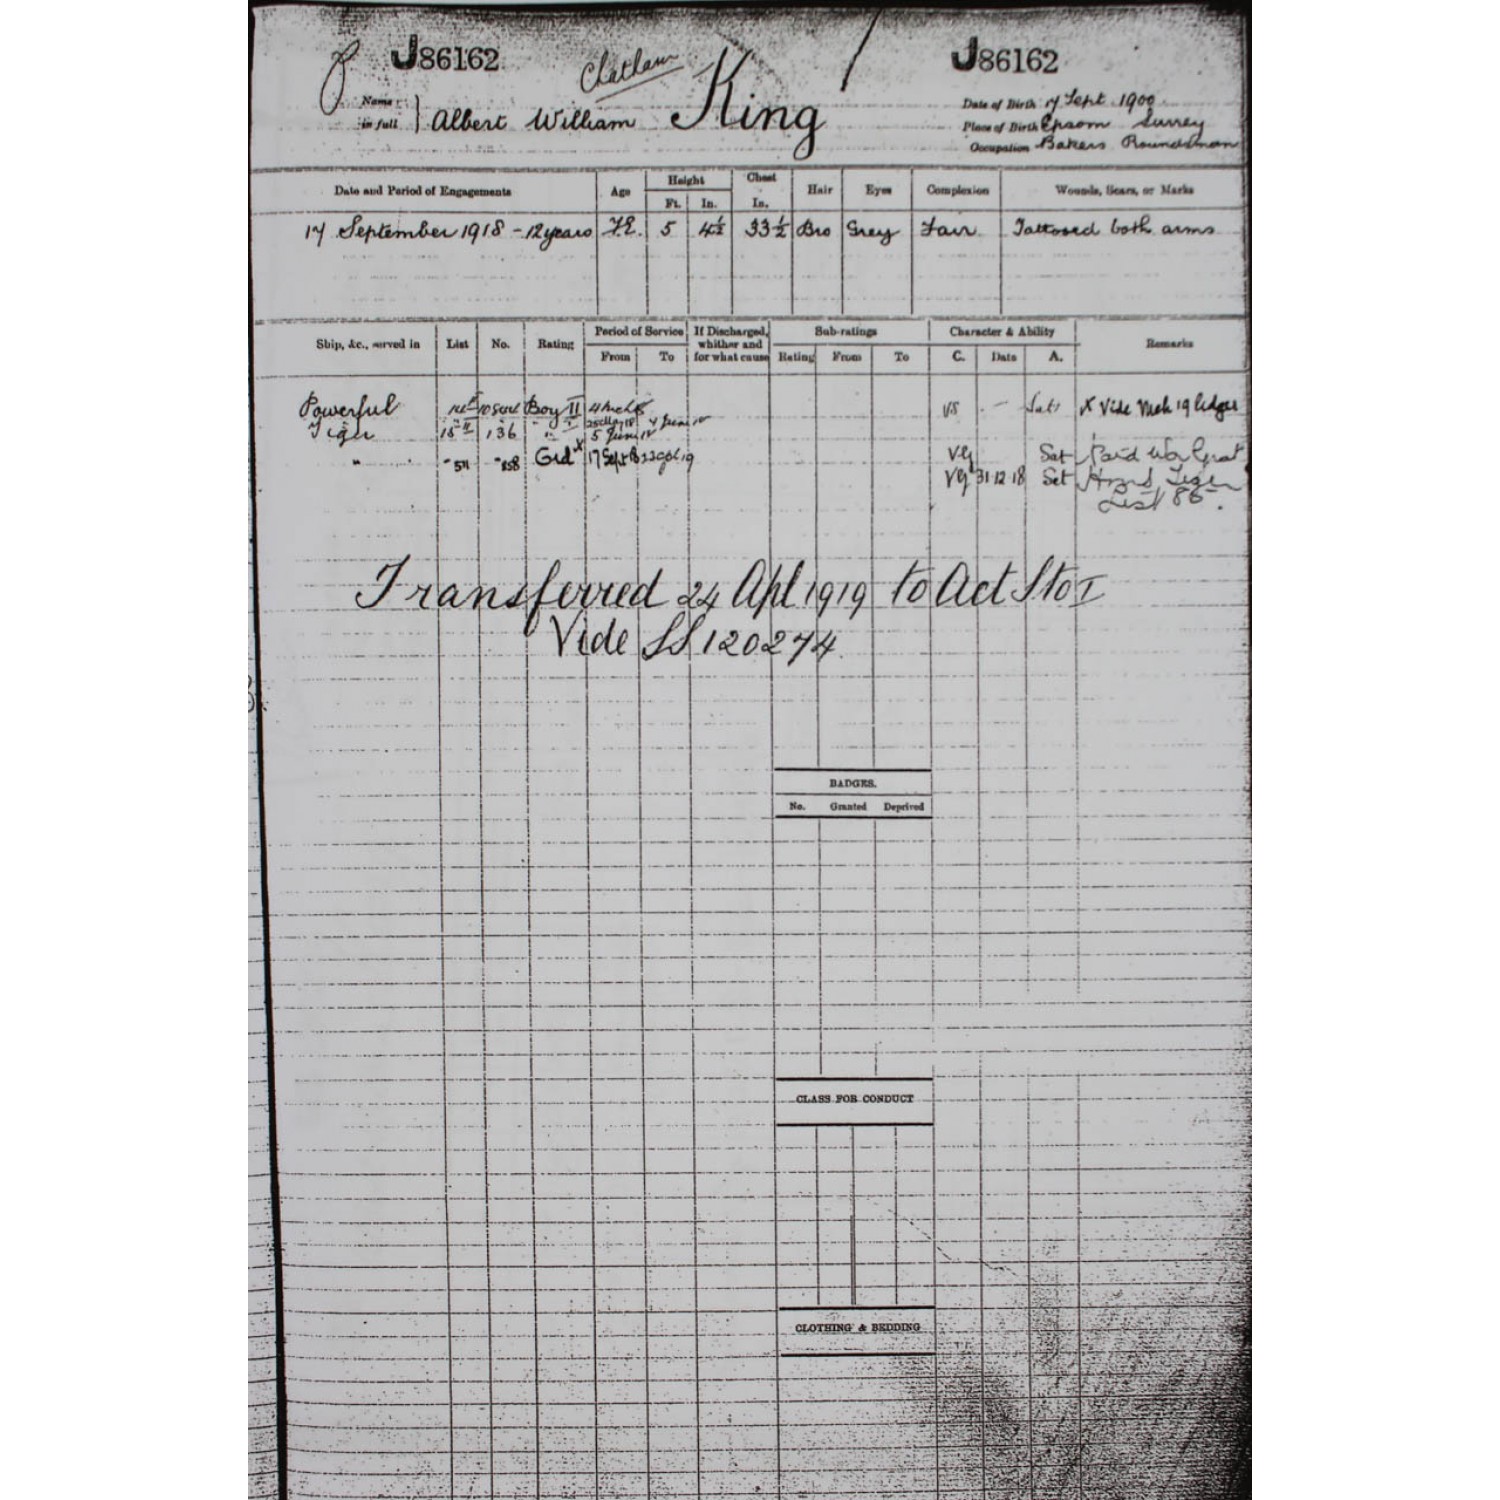 J86162 Chatham J86162
Name in full Albert William King
Date of Birth 17 Sept 1900
Place of Birth Epsom Surrey
Occupation Bakers Roundsman
Date and Period of Engagements Age Height Ft. In. Chest In. Hair Eyes Complexion Wounds, Scars, or Marks
17 September 1918 - 12 years 5 4½ 33½ Bro Grey Fair Tattooed both arms
Ship, &c., served in List No. Rating Period of Service From To If Discharged, whither and for what cause Sub-ratings Rating From To Character & Ability C. Date A. Remarks
Powerful Boy II X Vide Mch 19 ledger
Tiger 15 136 5 June 18
" 17 Sept 18 VG Sat Paid War Grat
VG 31·12·18 Sat Tiger
List 86
Transferred 24 Apl 1919 to Act Sto I
Vide SS 120274
BADGES.
No. Granted Deprived
CLASS FOR CONDUCT
CLOTHING & BEDDING